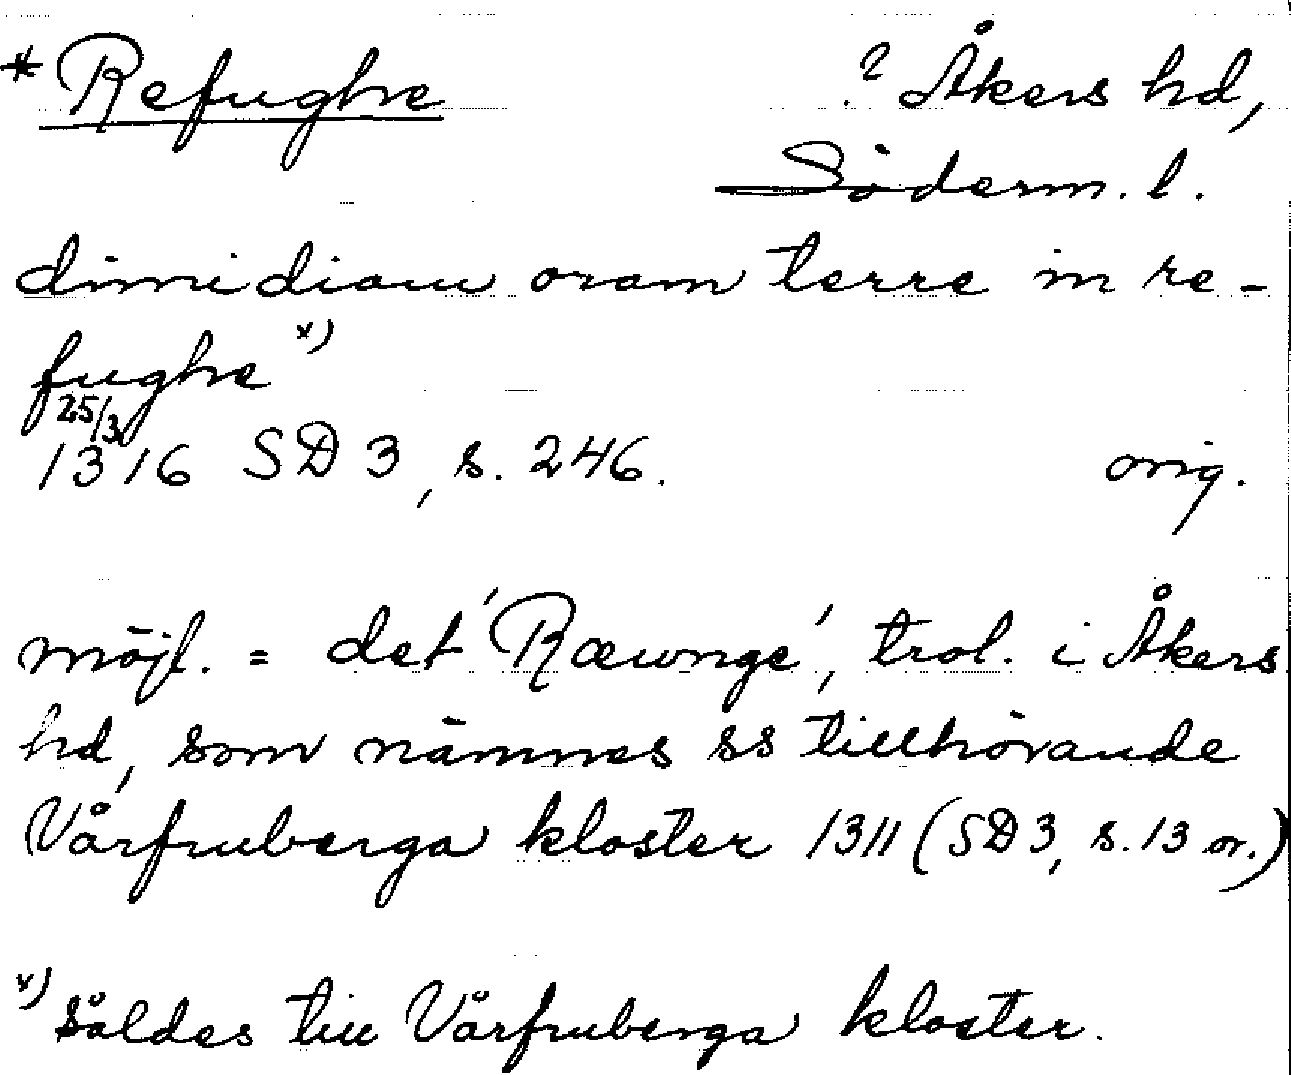 * Refughe ? Åkers hd,
Söderm. l.
dimidiam oram terre in re-
fughe x)
25/3
1316 SD 3, s. 246. orig.
möjl. = det 'Ræwnge', trol. i Åkers
hd, som nämnes ss tillhörande
Vårfruberga kloster 1311 (SD 3, s. 13 or.)
x) såldes till Vårfruberga kloster.